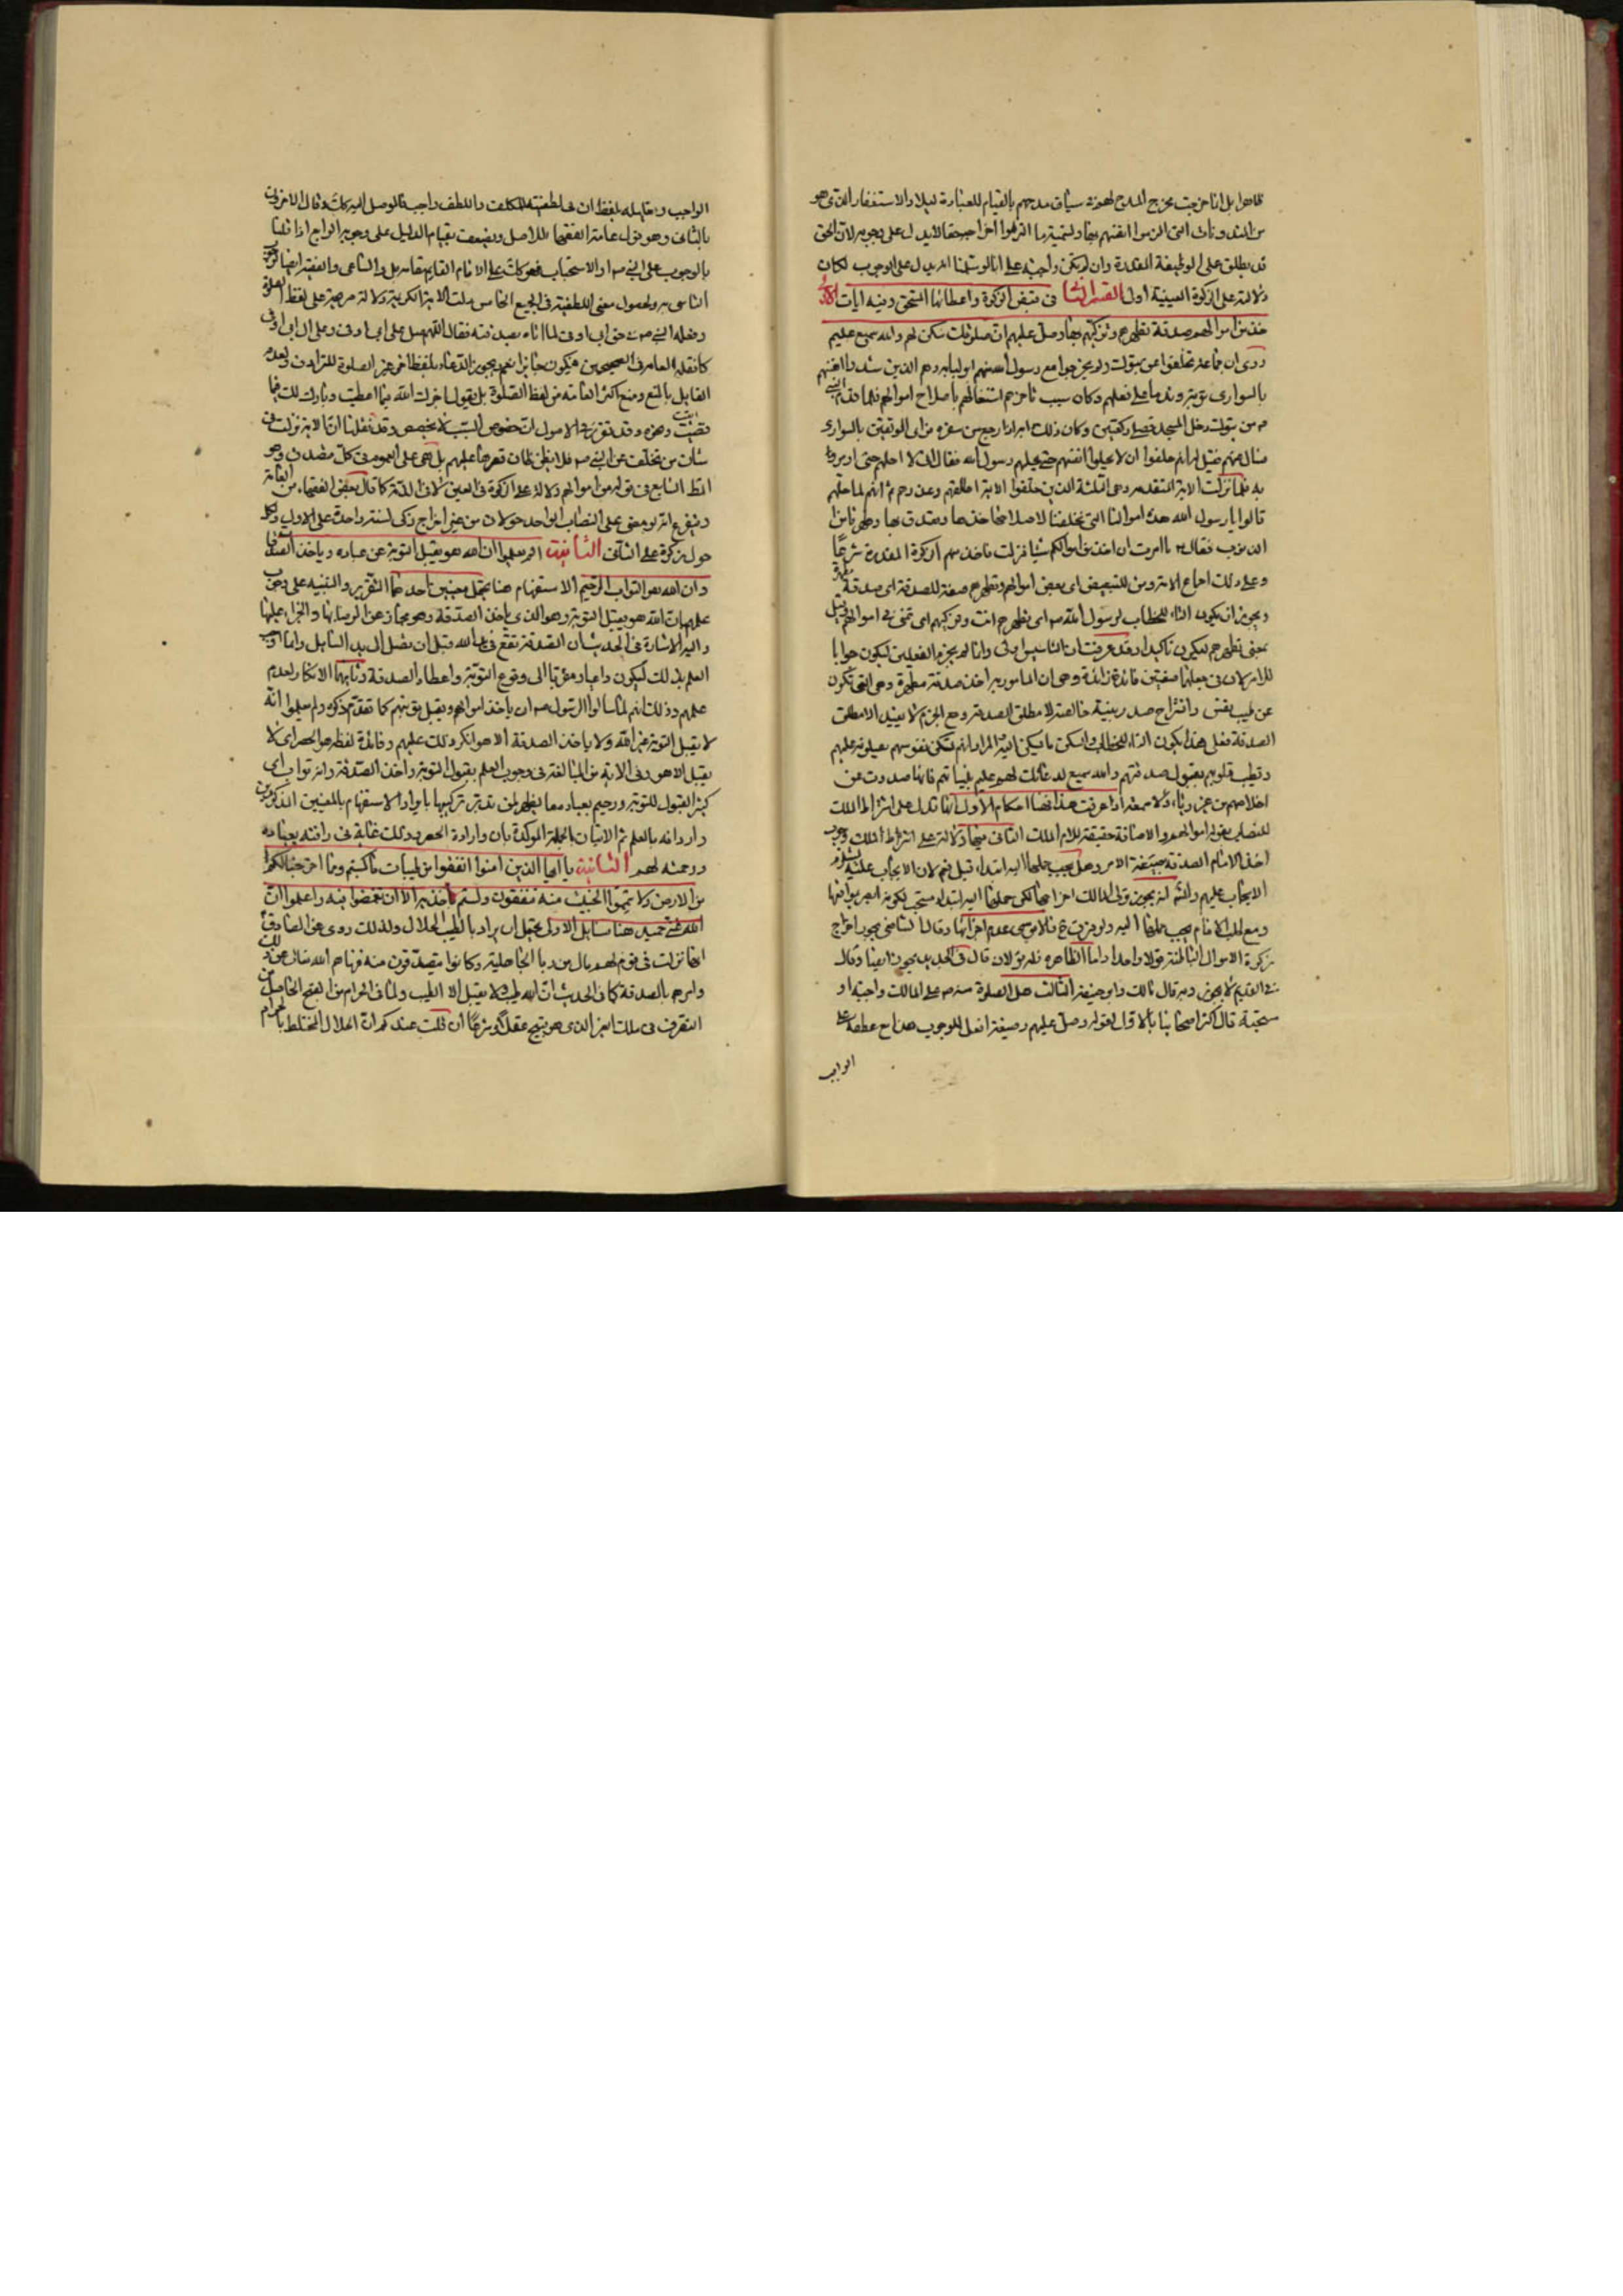 ظاهرا بل انما خرجت مخرج المدح لهم فان سياق مدحهم بالقيام للعبادة ليلا والاستغفار الذي هو
من المندوبات التي الزموا انفسهم بها وتسميته بما الزموا حقا لا يدل على وجوبه لان الحق
قد يطلق على الوظيفة المقدرة وان لم تكن واجبة على انا لو سلمنا انه يدل على الوجوب لكان
دلالته على الزكوة العينية اولى القسم الثاني في قبض الزكوة واعطائها المستحق وفيه ايات الاولى
خذ من اموالهم صدقة تطهرهم وتزكيهم بها وصل عليهم ان صلوتك سكن لهم والله سميع عليم
روى ان جماعة تخلفوا عن تبوك ولم يخرجوا مع رسول الله منهم ابو لبابة وهم الذين شدوا انفسهم
بالسواري توبة وندما على فعلهم وكان سبب تاخرهم اشتغالهم باصلاح اموالهم فلما قدم النبي
ص من تبوك دخل المسجد فصلى ركعتين وكان ذلك دابه اذا رجع من سفره فراى الموثقين بالسواري
فسال عنهم فقيل له انهم حلفوا ان لا يحلوا انفسهم حتى يحلهم رسول الله فقال انا لا احلهم حتى اومر
به فلما نزلت الاية المتقدمة وهي الثلثة الذين خلفوا الاية اطلقهم وعذرهم ثم انهم لما حلهم
قالوا يا رسول الله هذه اموالنا التي تخلفنا لاصلاحها خذها وتصدق بها وطهرنا من
الذنوب فقال ما امرت ان اخذ من اموالكم شيئا فنزلت فاخذ منهم الزكوة المقدرة شرعا
وعلى ذلك اجماع الامة ومن للتبعيض اى بعض اموالهم وتطهرهم صفة للصدقة اى صدقة مطهرة
ويجوز ان يكون التاء للخطاب لرسول الله ص اى تطهرهم انت وتزكيهم اى تنمى في اموالهم وقيل
بمعنى تطهرهم ليكون تاكيدا وقد عرفت ان التاسيس اولى وانما لم يجزم الفعلين ليكون جوابا
للامر لان في جعلهما صفتين فائدة زائدة وهي ان المامور به اخذ صدقة مطهرة وهي التي تكون
عن طيب نفس وانشراح صدر بنية خالصة لا مطلق الصدقة ومع الجزم لا يفيد الا مطلق
الصدقة فعلى هذا يكون التاء للخطاب والسكن ما يسكن اليه المراد انهم تسكن نفوسهم بصلوته عليهم
وتطيب قلوبهم بقبول صدقتهم والله سميع لدعائك لهم عليم بنياتهم فانها صدرت عن
اخلاصهم من غير رياء ولا سمعة اذا عرفت هذا فهنا احكام الاول انها تدل على اشتراط الملك
للنصاب بقوله اموالهم والاضافة حقيقة للام الملك الثاني فيها دلالة على اشتراط الملك وجوب
اخذ الامام الصدقة بصيغة الامر وهل يجب حملها اليه ابتداء قيل نعم لان الايجاب عليه يستلزم
الايجاب عليهم والثاني لا يجوز تولى المالك اخراجها لكن حملها اليه ابتداء مستحب لكونه ابصر بمواقعها
ومع طلب الامام يجب حملها اليه ولو فرقت ح فالاقوى عدم اجزائها وقال الشافعي يجوز اخراج
زكوة الاموال الباطنة قولا واحدا واما الظاهرة فله قولان قال في الجديد يجوز ايضا وقال
في القديم لا يجوز وبه قال مالك وابو حنيفة الثالث هل الصلوة منه ص على المالك واجبة او
مستحبة قال اكثر اصحابنا بالاول لقوله وصل عليهم وصيغة افعل للوجوب هذا مع عطفه على
الواجب
الواجب ومقابله بلفظ ان في لطفية للمكلف واللطف واجب فالموصل اليه كذلك وقال الاخرون
بالثاني وهو قول عامة الفقهاء للاصل ويضعف بقيام الدليل على وجوبه الرابع اذا قلنا
بالوجوب على النبي ص او الاستحباب فهو كذلك على الامام القايم مقامه بل والساعي والفقيه ايضا لوجوب
التاسي به ولحصول معنى اللطفية في الجميع الخامس دلت الاية الكريمة دلالة صريحة على لفظ الصلوة
وفعله النبي ص في حق ابي اوفى لما اتاه بصدقته فقال اللهم صل على ابي اوفى وعلى ال ابي اوفى
كما نقله العامة في الصحيحين فيكون جايزا نعم يجوز الدعاء بلفظ اخر غير الصلوة للترادف ولعدم
القايل بالمنع ومنع اكثر العامة من لفظ الصلوة بل يقول اجرك الله فيما اعطيت وبارك لك فيما
ابقيت وهذه وقد تقرر في الاصول ان خصوص السبب لا يخصص وقد نقلنا ان الاية نزلت في
شان من تخلف عن النبي ص فلا يظن ظان قصرها عليهم بل هي على العموم في كل متصدق وهو
المط السابع في قوله من اموالهم دلالة على ان الزكوة في العين لا في الذمة كما قال بعض الفقهاء من العامة
ويتفرع انه لو مضى على النصاب الواحد حولان من غير اخراج زكى لسنة واحدة على الاول ولكل
حول زكوة على الثاني الثانية الم يعلموا ان الله هو يقبل التوبة عن عباده وياخذ الصدقات
وان الله هو التواب الرحيم الاستفهام هنا يحتمل معنيين احدهما التقرير والتنبيه على وجوب
علمهم بان الله هو يقبل التوبة وهو الذي ياخذ الصدقة وهو مجاز عن الرضا بها والجزاء عليها
واليه الاشارة في الحديث ان الصدقة تقع في يد الله قبل ان تصل الى يد السايل وانما اوجب
العلم بذلك ليكون داعيا ومرغبا الى وقوع التوبة واعطاء الصدقة وثانيهما الانكار لعدم
علمهم وذلك انهم لما سالوا الرسول ص ان ياخذ اموالهم ويقبل توبتهم كما تقدم ذكره ولم يعلموا انه
لا يقبل التوبة غير الله ولا ياخذ الصدقة الا هو انكر ذلك عليهم وفائدة لفظ هو الحصر اى لا
يقبل الا هو وفي الاية من المبالغة في وجوب العلم بقبول التوبة واخذ الصدقة وانه تواب اى
كثير القبول للتوبة ورحيم بعباده ما يظهر لمن تدبر تركيبها بايراد الاستفهام بالمعنيين المذكورين
واردافه بالعلم ثم الاتيان بالجملة المؤكدة بان وارادة الحصر وذلك غاية في رافته بعباده
ورحمته لهم الثالثة يا ايها الذين امنوا انفقوا من طيبات ما كسبتم ومما اخرجنا لكم
من الارض ولا تيمموا الخبيث منه تنفقون ولستم باخذيه الا ان تغمضوا فيه واعلموا ان
الله غني حميد هنا مسايل الاولى يحتمل ان يراد بالطيب الحلال ولذلك روى عن الصادق ع
انها نزلت في قوم لهم مال من ربا الجاهلية وكانوا يتصدقون منه فنهاهم الله تعالى عن ذلك
وامرهم بالصدقة كما في الحديث ان الله طيب ولا يقبل الا الطيب ولما في الحرام من القبح الحاصل من
التصرف في ملك الغير الذي هو قبيح عقلا وشرعا ان قلت عندكم ان الحلال المختلط بالحرام